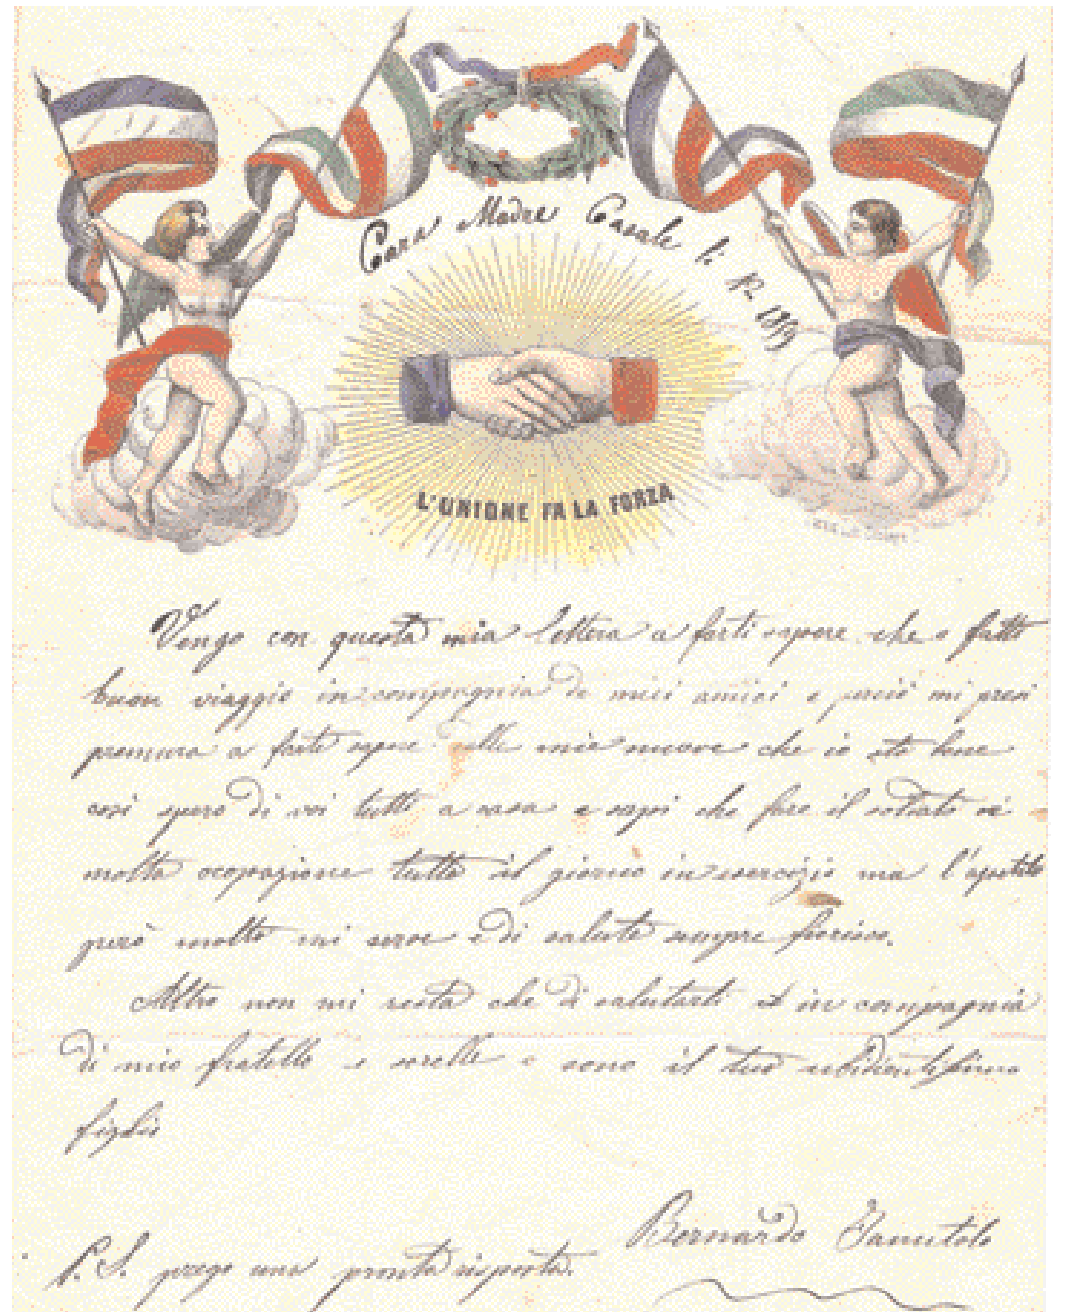 Cara Madre Casale li 12 1859
L'UNIONE FA LA FORZA
Vengo con questa mia lettera a farti sapere che o fatto
buon viaggio in compagnia de miei amici e perciò mi presi
premura a farti sapere delle mie nuove che io sto bene
così spero di voi tutti a casa e sapi che fare il soldato vè
molta ocopazione tutto il giorno in esercizio ma l'apetito
però molto mi serve e di salute sempre fiorisco.
Altro non mi resta che di salutarti et in compagnia
di mio fratello e sorelle e sono il tuo ubidientissimo
figlio
Bernardo
P.S. prego una pronta risposta.